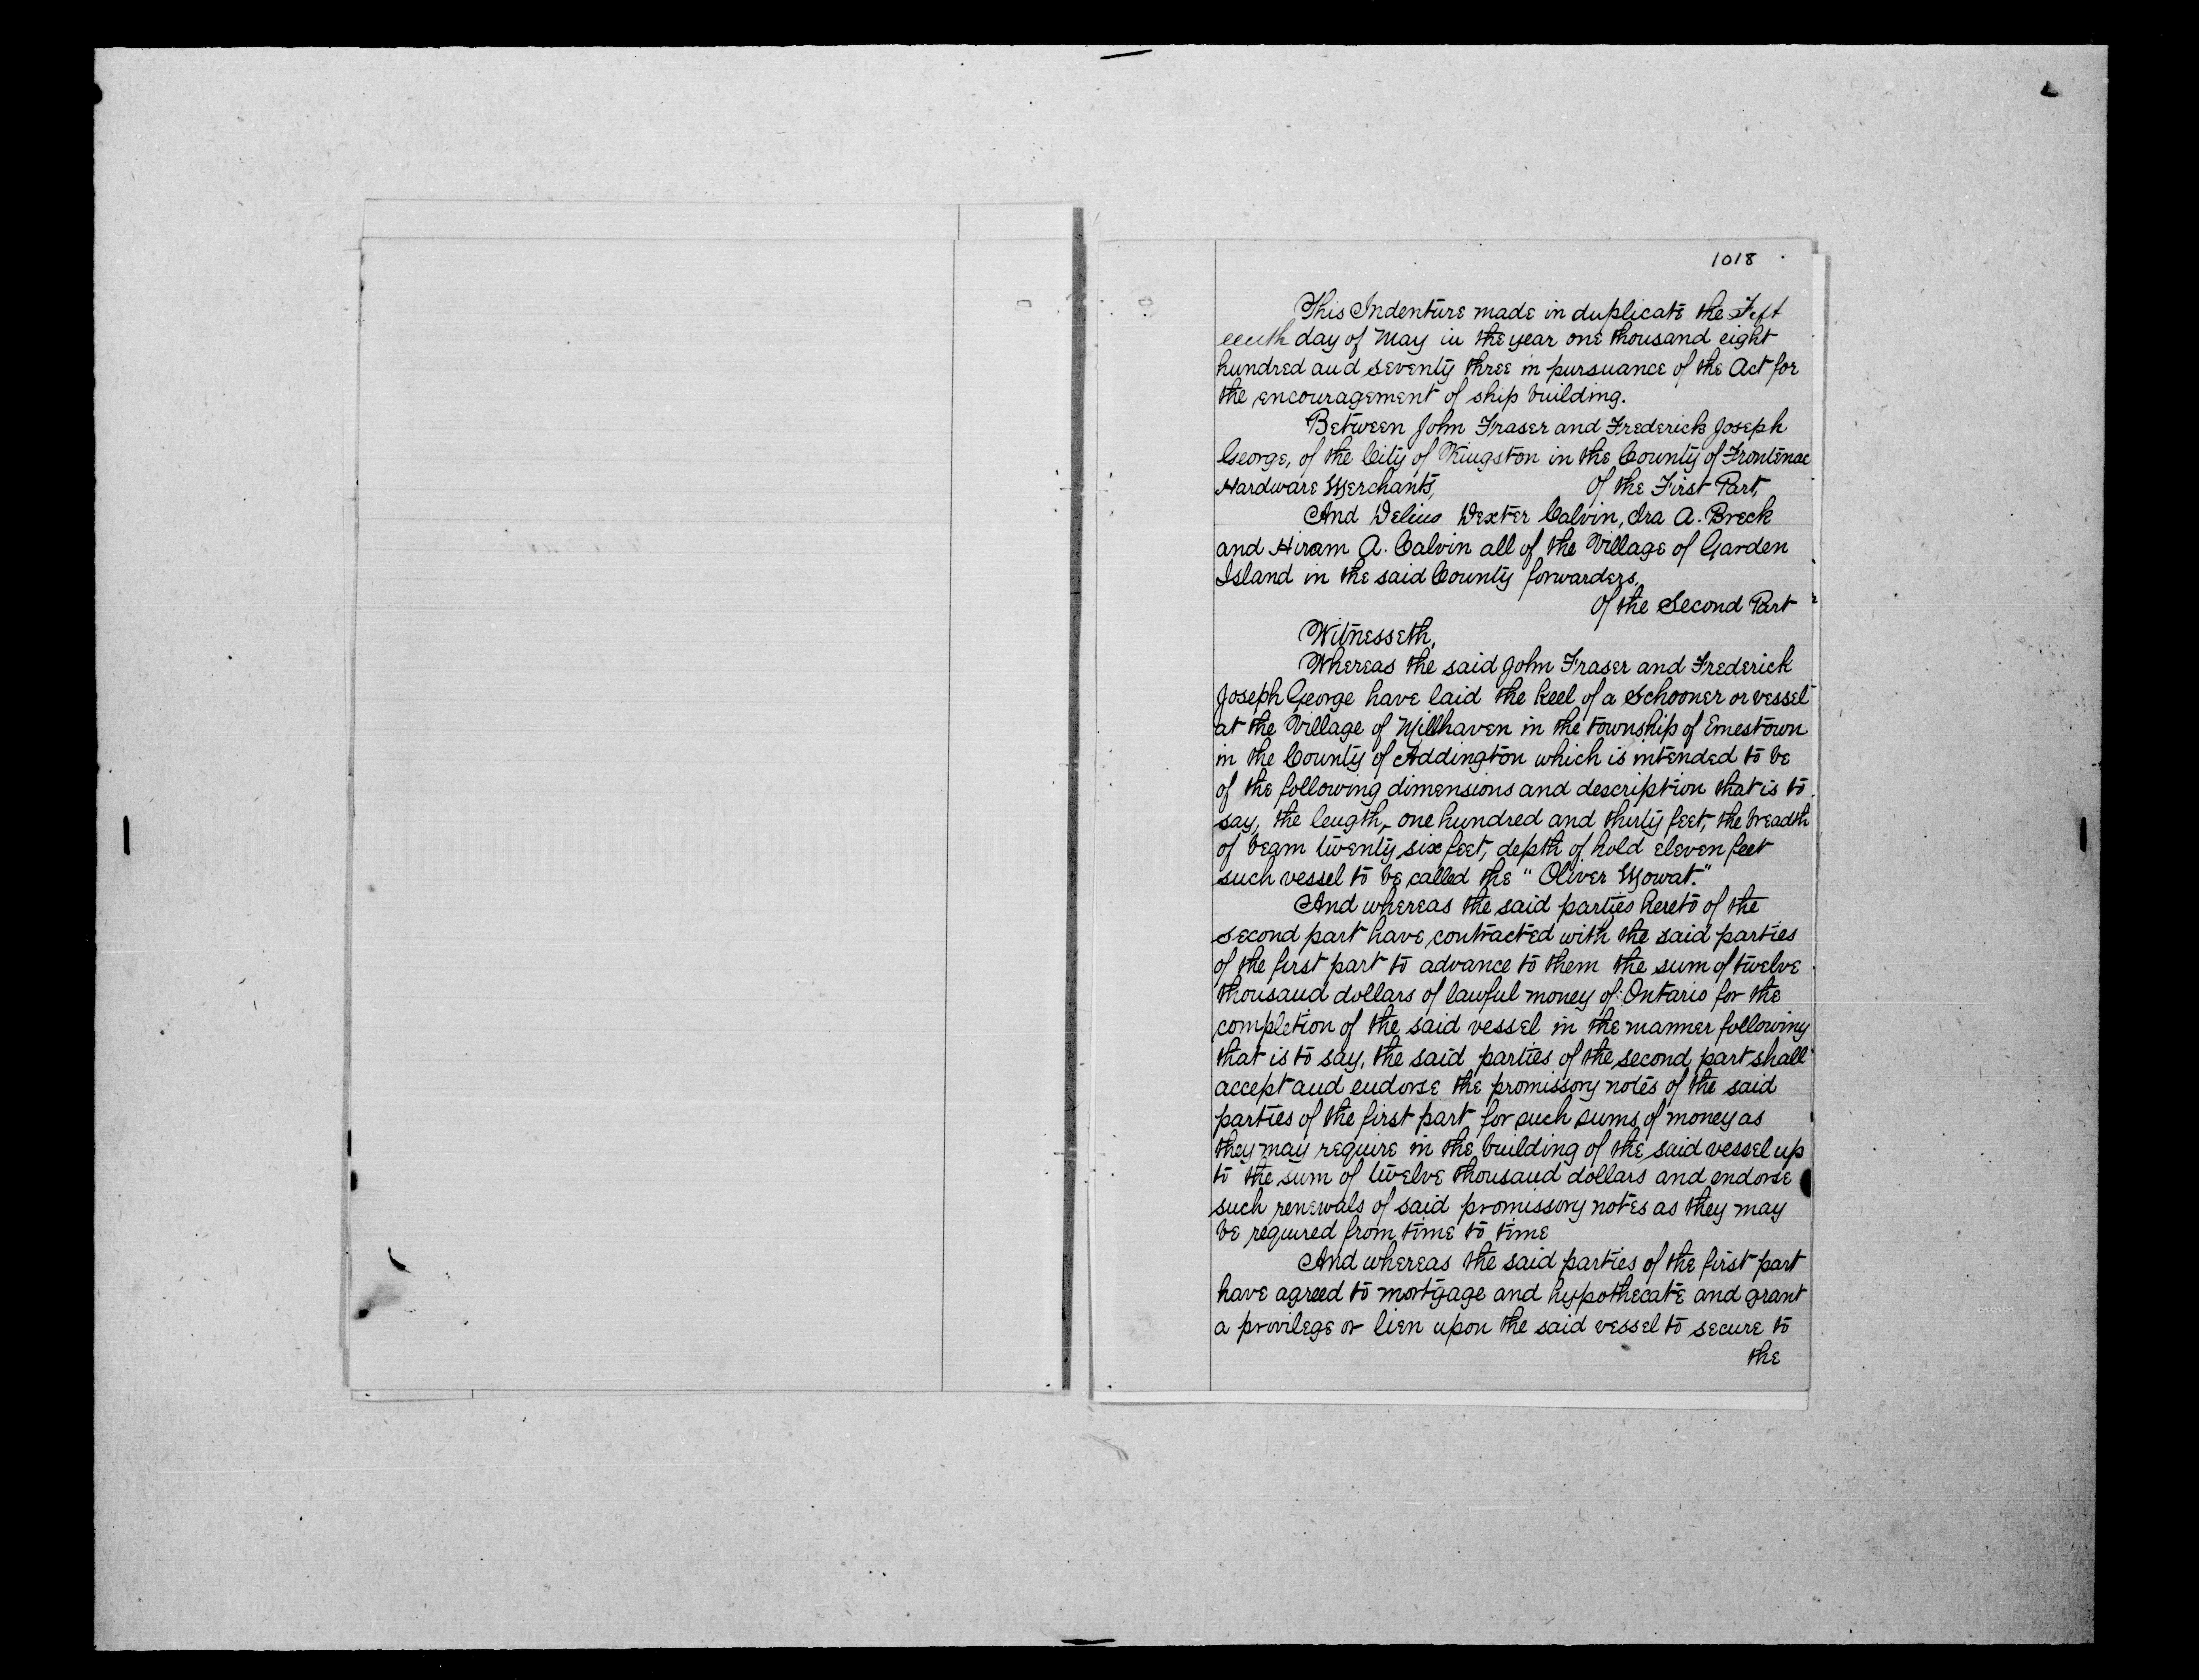 1018
This Indenture made in duplicate the Fift
eenth day of May in the year one thousand eight
hundred and seventy three in pursuance of the Act for
the encouragement of ship building.
Between John Fraser and Frederick Joseph
George, of the City of Kingston in the County of Frontenac
Hardware Merchants, Of the First Part,
And Delino Dexter Calvin, Ira A. Breck
and Hiram A. Calvin all of the Village of Garden
Island in the said County forwarders,
Of the Second Part
Witnesseth,
Whereas the said John Fraser and Frederick
Joseph George have laid the keel of a Schooner or vessel
at the Village of Millhaven in the township of Ernestown
in the County of Addington which is intended to be
of the following dimensions and description that is to
say, the length, one hundred and thirty feet, the breadth
of beam twenty six feet, depth of hold eleven feet
such vessel to be called the "Oliver Mowat."
And whereas the said parties hereto of the
second part have contracted with the said parties
of the first part to advance to them the sum of twelve
thousand dollars of lawful money of Ontario for the
completion of the said vessel in the manner following
that is to say, the said parties of the second part shall
accept and endorse the promissory notes of the said
parties of the first part for such sums of money as
they may require in the building of the said vessel up
to the sum of twelve thousand dollars and endorse
such renewals of said promissory notes as they may
be required from time to time
And whereas the said parties of the first part
have agreed to mortgage and hypothecate and grant
a privilege or lien upon the said vessel to secure to
the